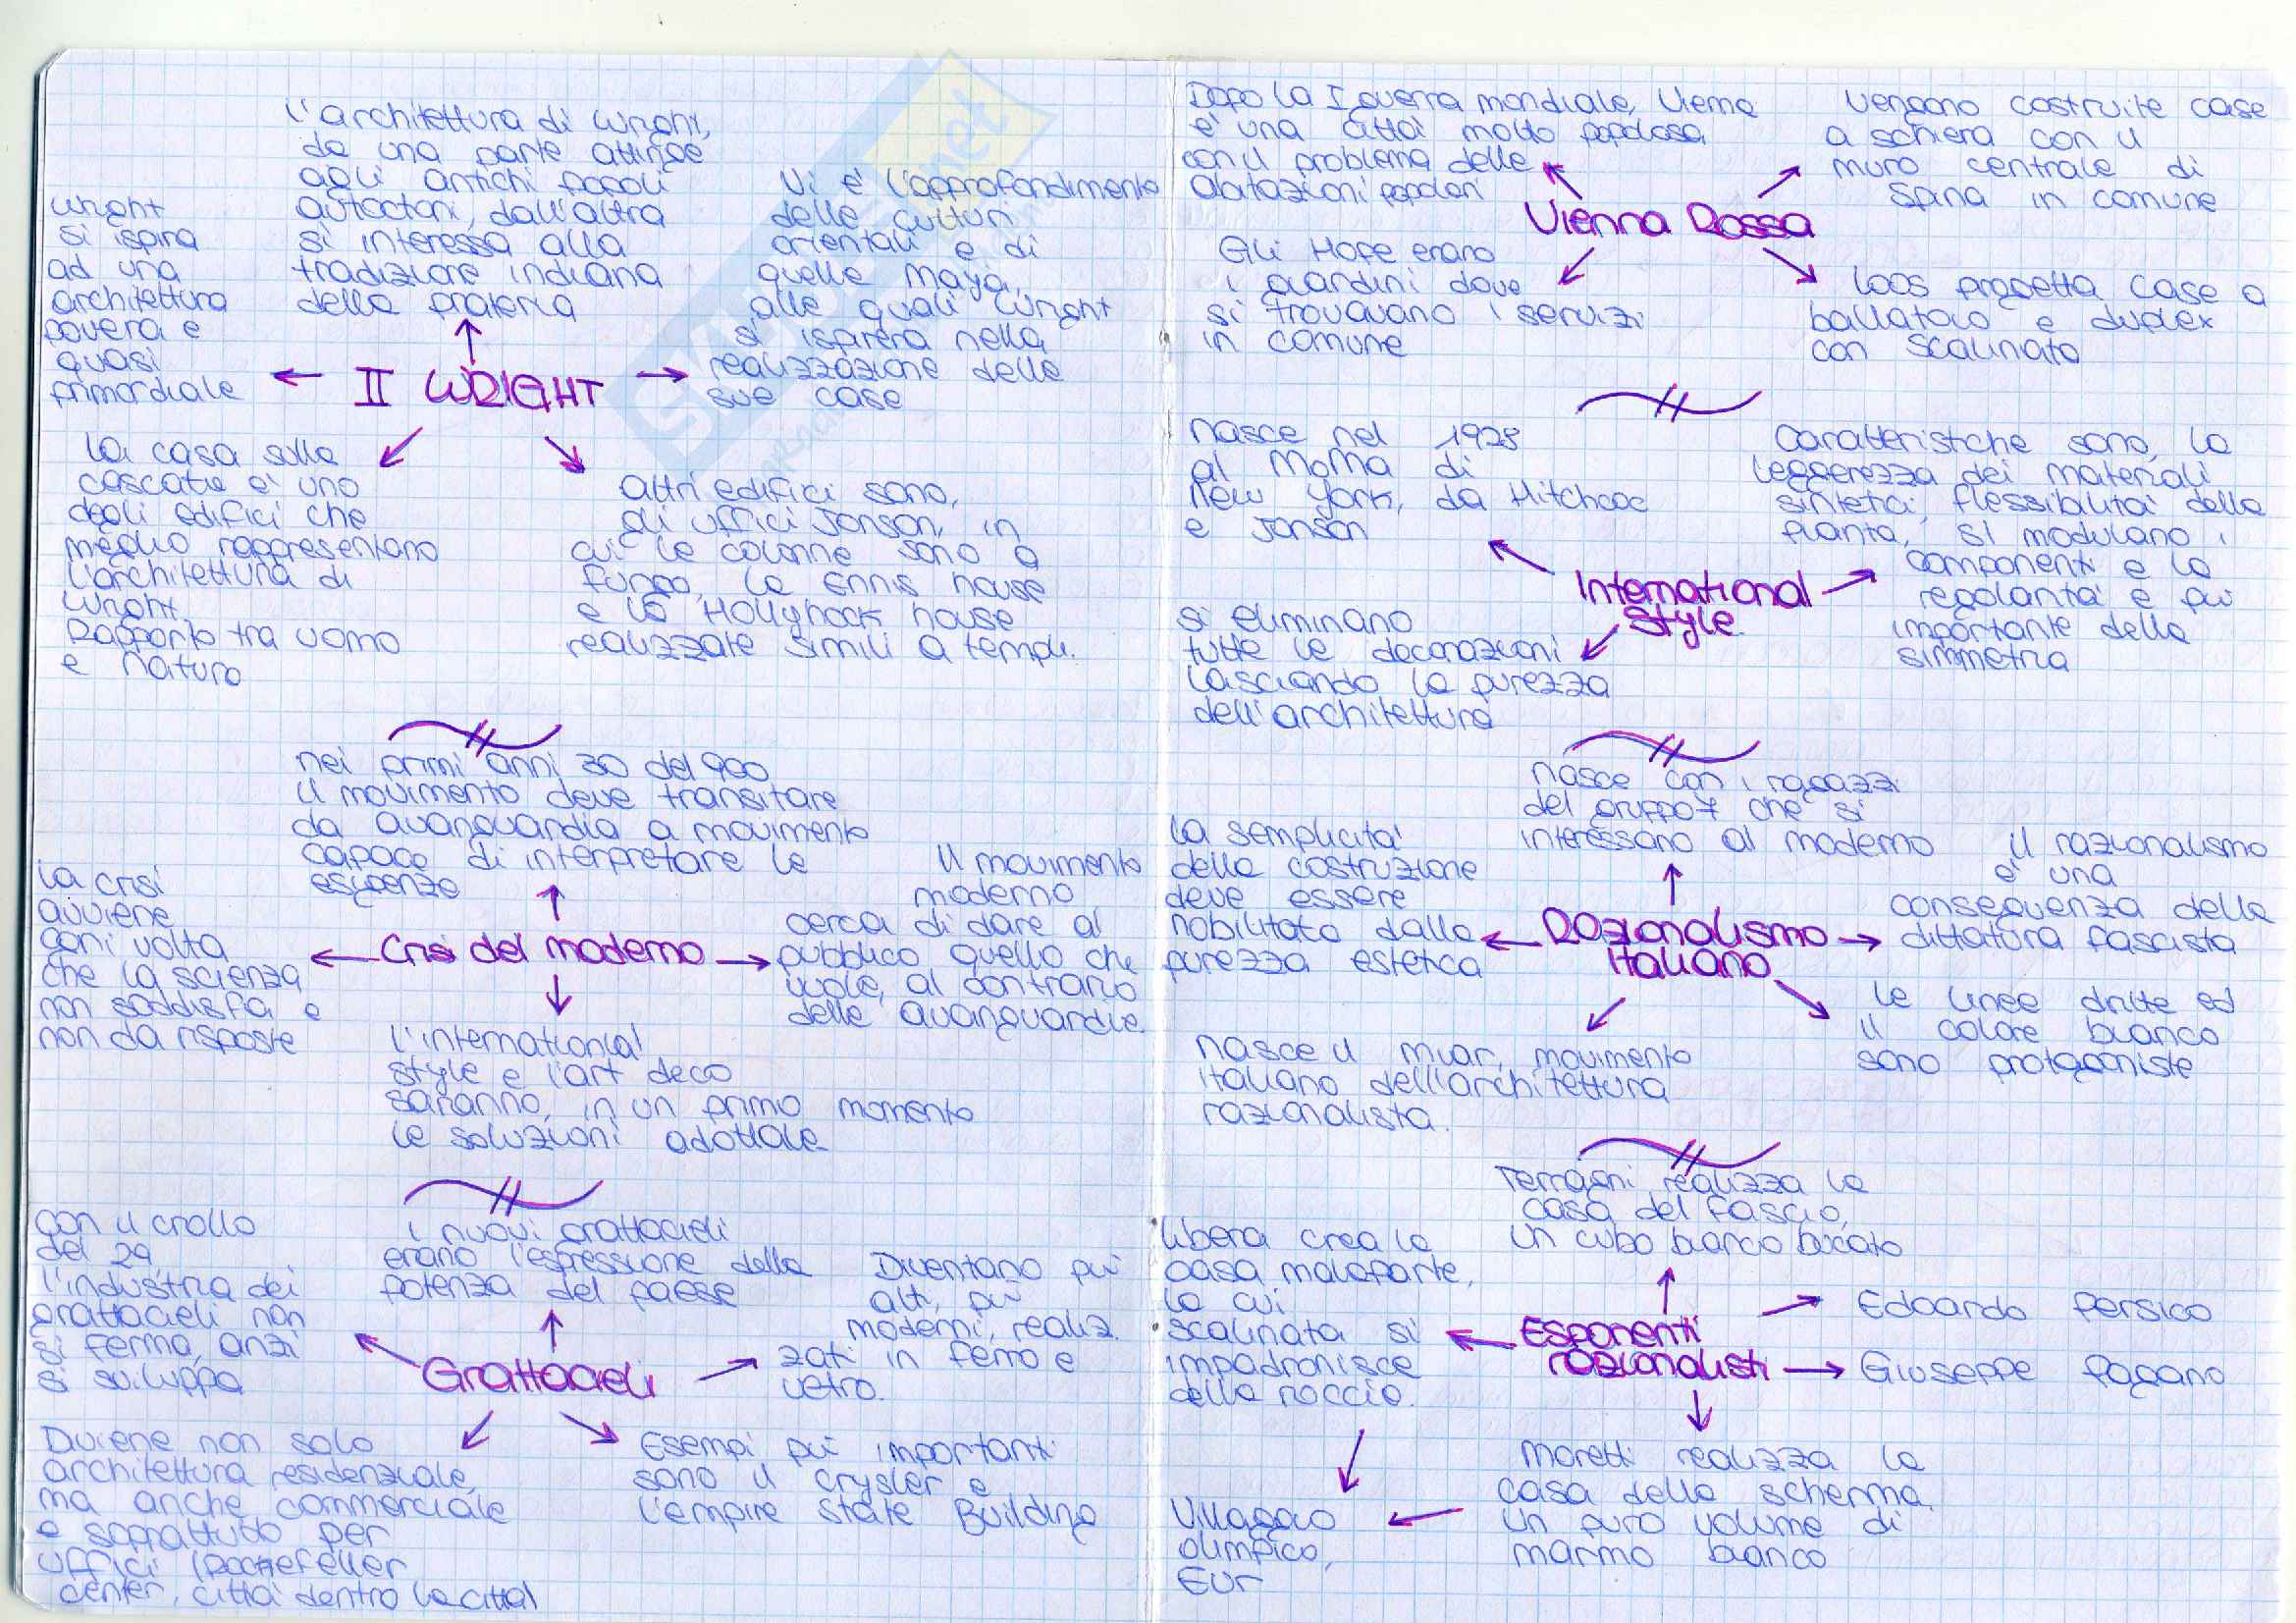 l'architettura di Wright,
da una parte attinge
agli antichi popoli
autoctoni, dall'altra
si interessa alla
tradizione indiana
della prateria
Wright
si ispira
ad una
architettura
povera e
quasi
primordiale
Vi è l'approfondimento
delle culturi
orientali e di
quelle maya,
alle quali Wright
si ispirerà nella
realizzazione delle
sue case
II WRIGHT
La casa sulla
cascata è uno
degli edifici che
meglio rappresentano
l'architettura di
Wright.
Rapporto tra uomo
e natura
altri edifici sono,
gli uffici Jonson, in
cui le colonne sono a
fungo, la Ennis house
e la Hollyhock house
realizzate simili a templi.
nei primi anni 30 del 900
il movimento deve transitare
da avanguardia a movimento
capace di interpretare le
esigenze
la crisi
avviene
ogni volta
che la scienza
non soddisfa e
non da risposte
Il movimento
moderno
cerca di dare al
pubblico quello che
vuole, al contrario
delle avanguardie.
Crisi del moderno
l'international
style e l'art deco
saranno, in un primo momento
le soluzioni adottate
con il crollo
del 29
l'industria dei
grattacieli non
si ferma, anzi
si sviluppa
i nuovi grattacieli
erano l'espressione della
potenza del paese
Diventano più
alti, più
moderni, realiz.
zati in ferro e
vetro.
Grattacieli
Diviene non solo
architettura residenziale,
ma anche commerciale
e soprattutto per
uffici (Rockefeller
center, città dentro la città)
Esempi più importanti
sono il crysler e
l'empire state Building
Dopo la I guerra mondiale, Vienna
è una città molto popolosa
con il problema delle
abitazioni popolari
vengono costruite case
a schiera con il
muro centrale di
spina in comune
Vienna Rossa
Gli Hofe erano
i giardini dove
si trovavano i servizi
in comune
Loos progetta case a
ballatoio e duplex
con scalinato
nasce nel 1928
al MoMa di
New York, da Hitchcoc
e Jonson
caratteristiche sono, la
leggerezza dei materiali
sintetici, flessibilità della
pianta, si modulano i
componenti e la
regolarità è più
importante della
simmetria
International
Style.
si eliminano
tutte le decorazioni
lasciando la purezza
dell'architettura
nasce con i ragazzi
del gruppo 7 che si
interessano al moderno
la semplicità
della costruzione
deve essere
nobilitata dalla
purezza estetica
il razionalismo
è una
conseguenza della
dittatura fascista
Razionalismo
Italiano
nasce il miar, movimento
italiano dell'architettura
razionalista.
le linee dritte ed
il colore bianco
sono protagoniste
Terragni realizza la
casa del fascio,
un cubo bianco bucato
libera crea la
casa malaparte,
la cui
scalinata si
impadronisce
della roccia.
Edoardo Persico
Esponenti
razionalisti
Giuseppe Pagano
Moretti realizza la
casa della scherma.
un puro volume di
marmo bianco
Villaggio
olimpico,
Eur